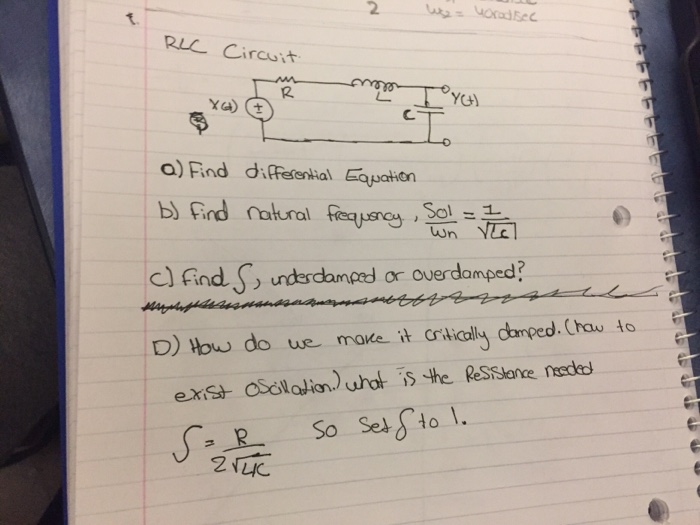 2 W2 = 40rad/sec
1.
RLC Circuit
R L
X(t) ± C Y(t)
a) Find differential Equation
b) Find natural frequency, Sol = 1
Wn √LC
c) find ζ, underdamped or overdamped?
D) How do we make it critically damped. (how to
exist oscillation.) what is the Resistance needed
ζ = R So Set ζ to 1.
2√L/C